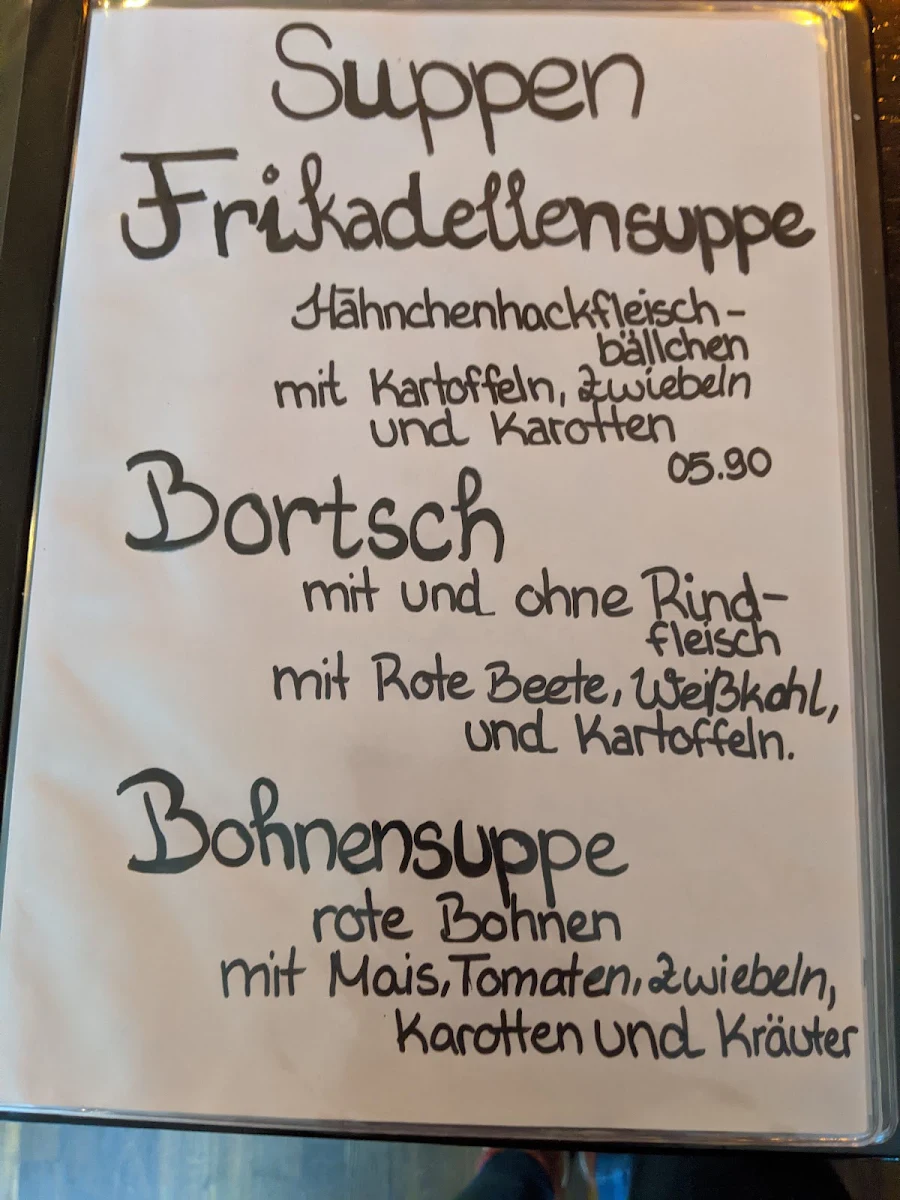 Suppen
Frikadellensuppe
Hähnchenhackfleisch-
bällchen
mit Kartoffeln, Zwiebeln
und Karotten
05.90
Bortsch
mit und ohne Rind-
fleisch
mit Rote Beete, Weißkohl,
und Kartoffeln.
Bohnensuppe
rote Bohnen
mit Mais, Tomaten, Zwiebeln,
Karotten und Kräuter